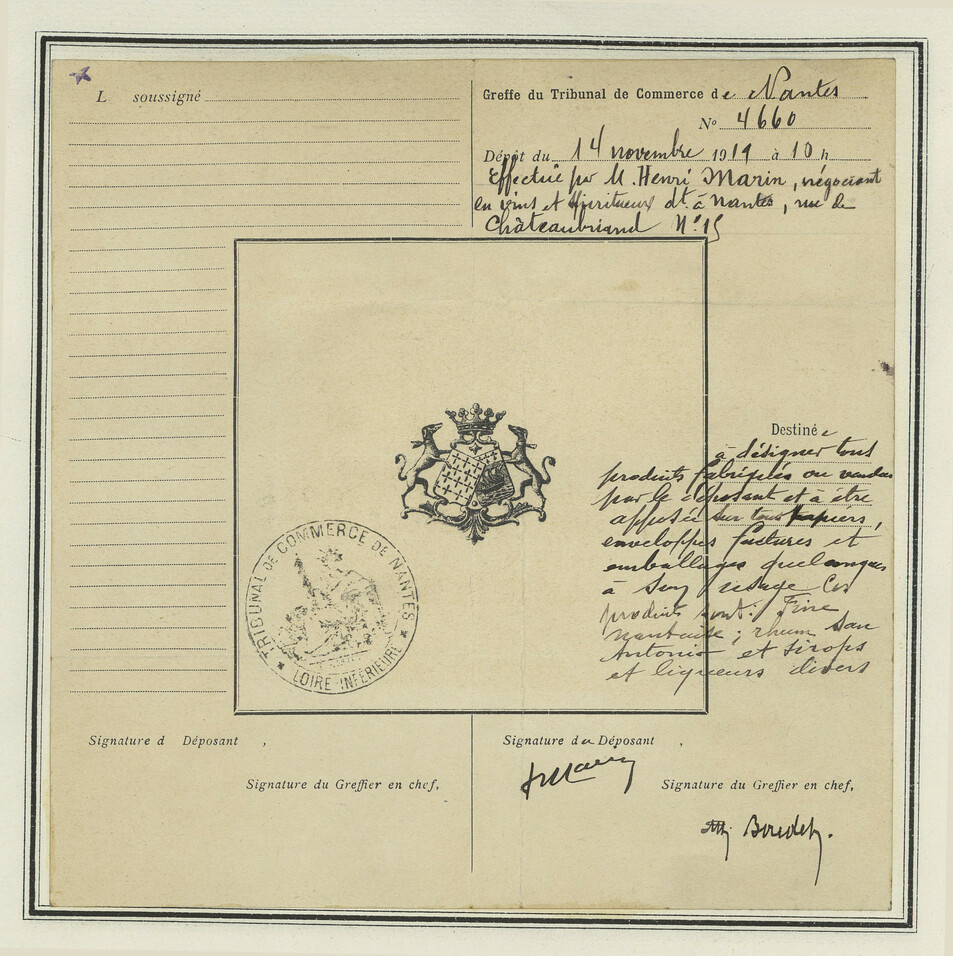 L soussigné
Greffe du Tribunal de Commerce de Nantes
No 4660
Dépôt du 14 novembre 1919 à 10 h
Effectué par M. Henri Marin, négociant
en vins et spiritueux dt. à Nantes, rue de
Châteaubriand N° 15
Destinée
à désigner tous
produits fabriqués ou vendus
par le déposant et à être
apposée sur tous papiers,
enveloppes factures et
emballages quelconques
à son usage Ces
produits sont: Fine
nantaise; rhum San
Antonio et sirops
et liqueurs divers
* TRIBUNAL DE COMMERCE DE NANTES *
LOIRE-INFÉRIEURE
Signature d Déposant ,
Signature du Greffier en chef,
Signature du Déposant ,
HMarin
Signature du Greffier en chef,